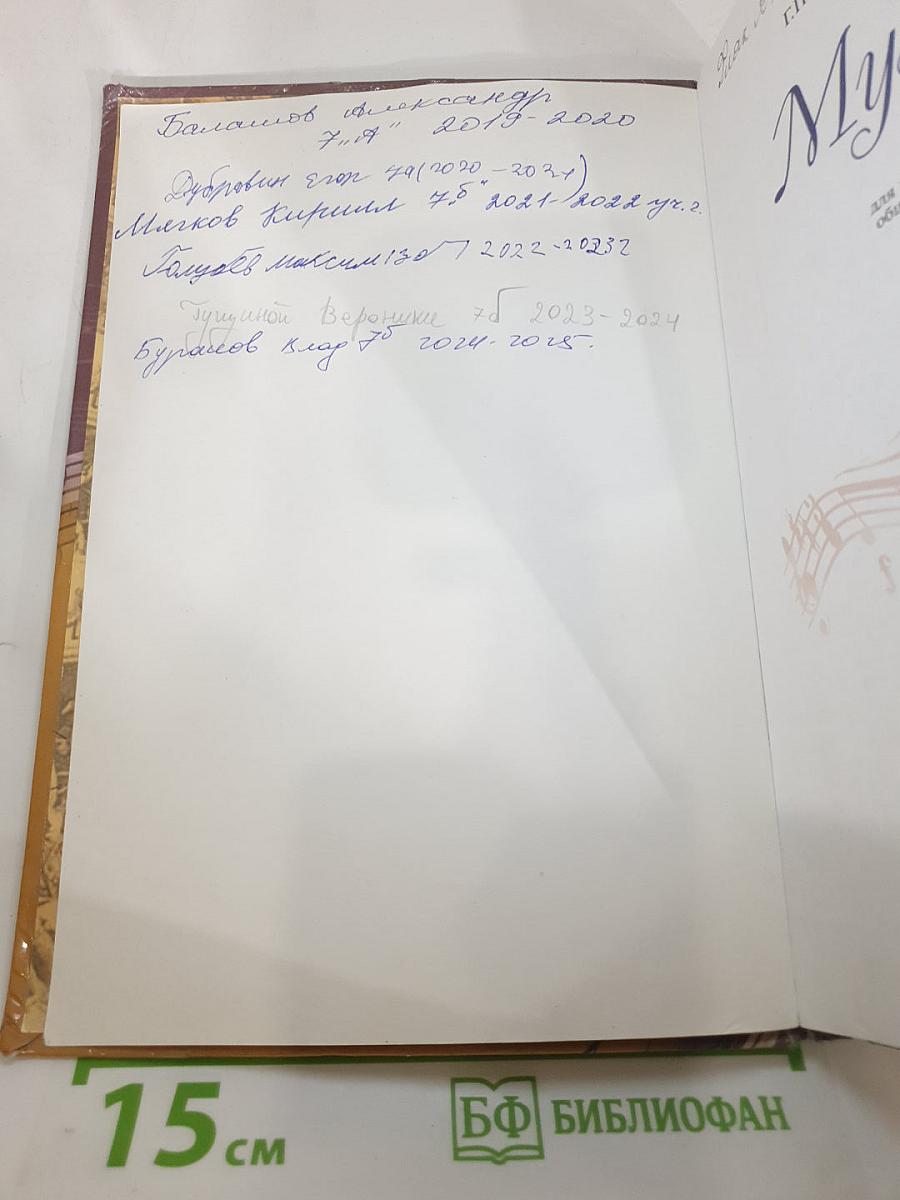 Балашов Александр
7 „А" 2019-2020
Дубровин Егор 7а (2020-2021)
Мягков Кирилл 7„б" 2021-2022 уч. г.
Максим 2022-2023г
Вероники 7б 2023-2024
Влад 7б 2024-2025.
Как
Му
для
общ
15 см
БФ БИБЛИОФАН